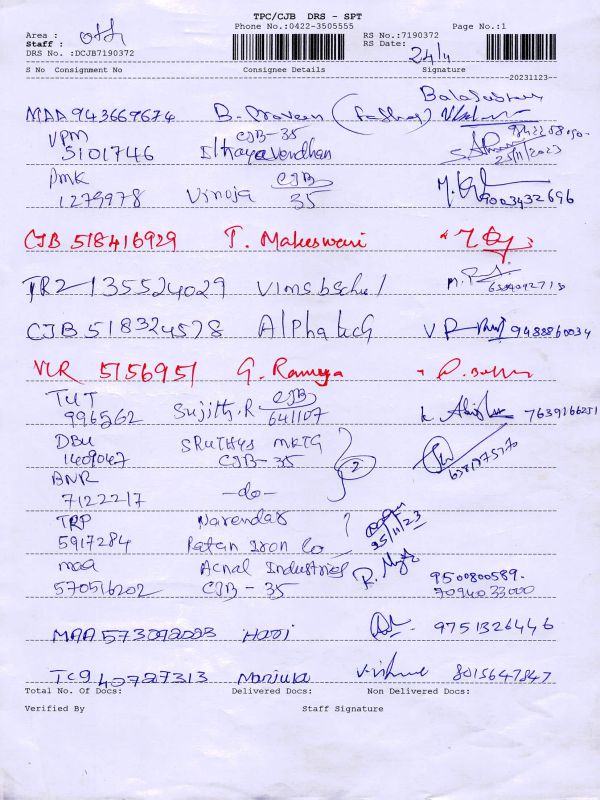 TPC/CJB DRS - SPT
Phone No.:0422-3505555 Page No.:1
Area : RS No.:7190372
Staff : RS Date: 24/4
DRS No. :DCJB7190372
S No Consignment No Consignee Details Signature
20231123
MAA 943669674 B. Praveen
VPM CJB-35
5101746 25/11/2023
PMK CJB
1279978 Vinoja 35 9003432696
CJB 518416929 T. Makeswari
TRZ 135524029
CJB 518324578 Alphatech VP 9488860034
VLR 5156951 G. Ramya
TUT CJB
996562 Sujith.R 641107 7639166251
DBU SRUTHYS MKTG
1409047 CJB-35 2
BNR
7122217 -do-
TRP Narendar
5917284 Ratan Iron Co 25/11/23
maa Acnal Industries
570516202 CJB-35 R. 9500800589.
7094033000
MAA 573092023 Hari 9751326446
TC9 40787313 Manjula 8015647847
Total No. Of Docs: Delivered Docs: Non Delivered Docs:
Verified By Staff Signature